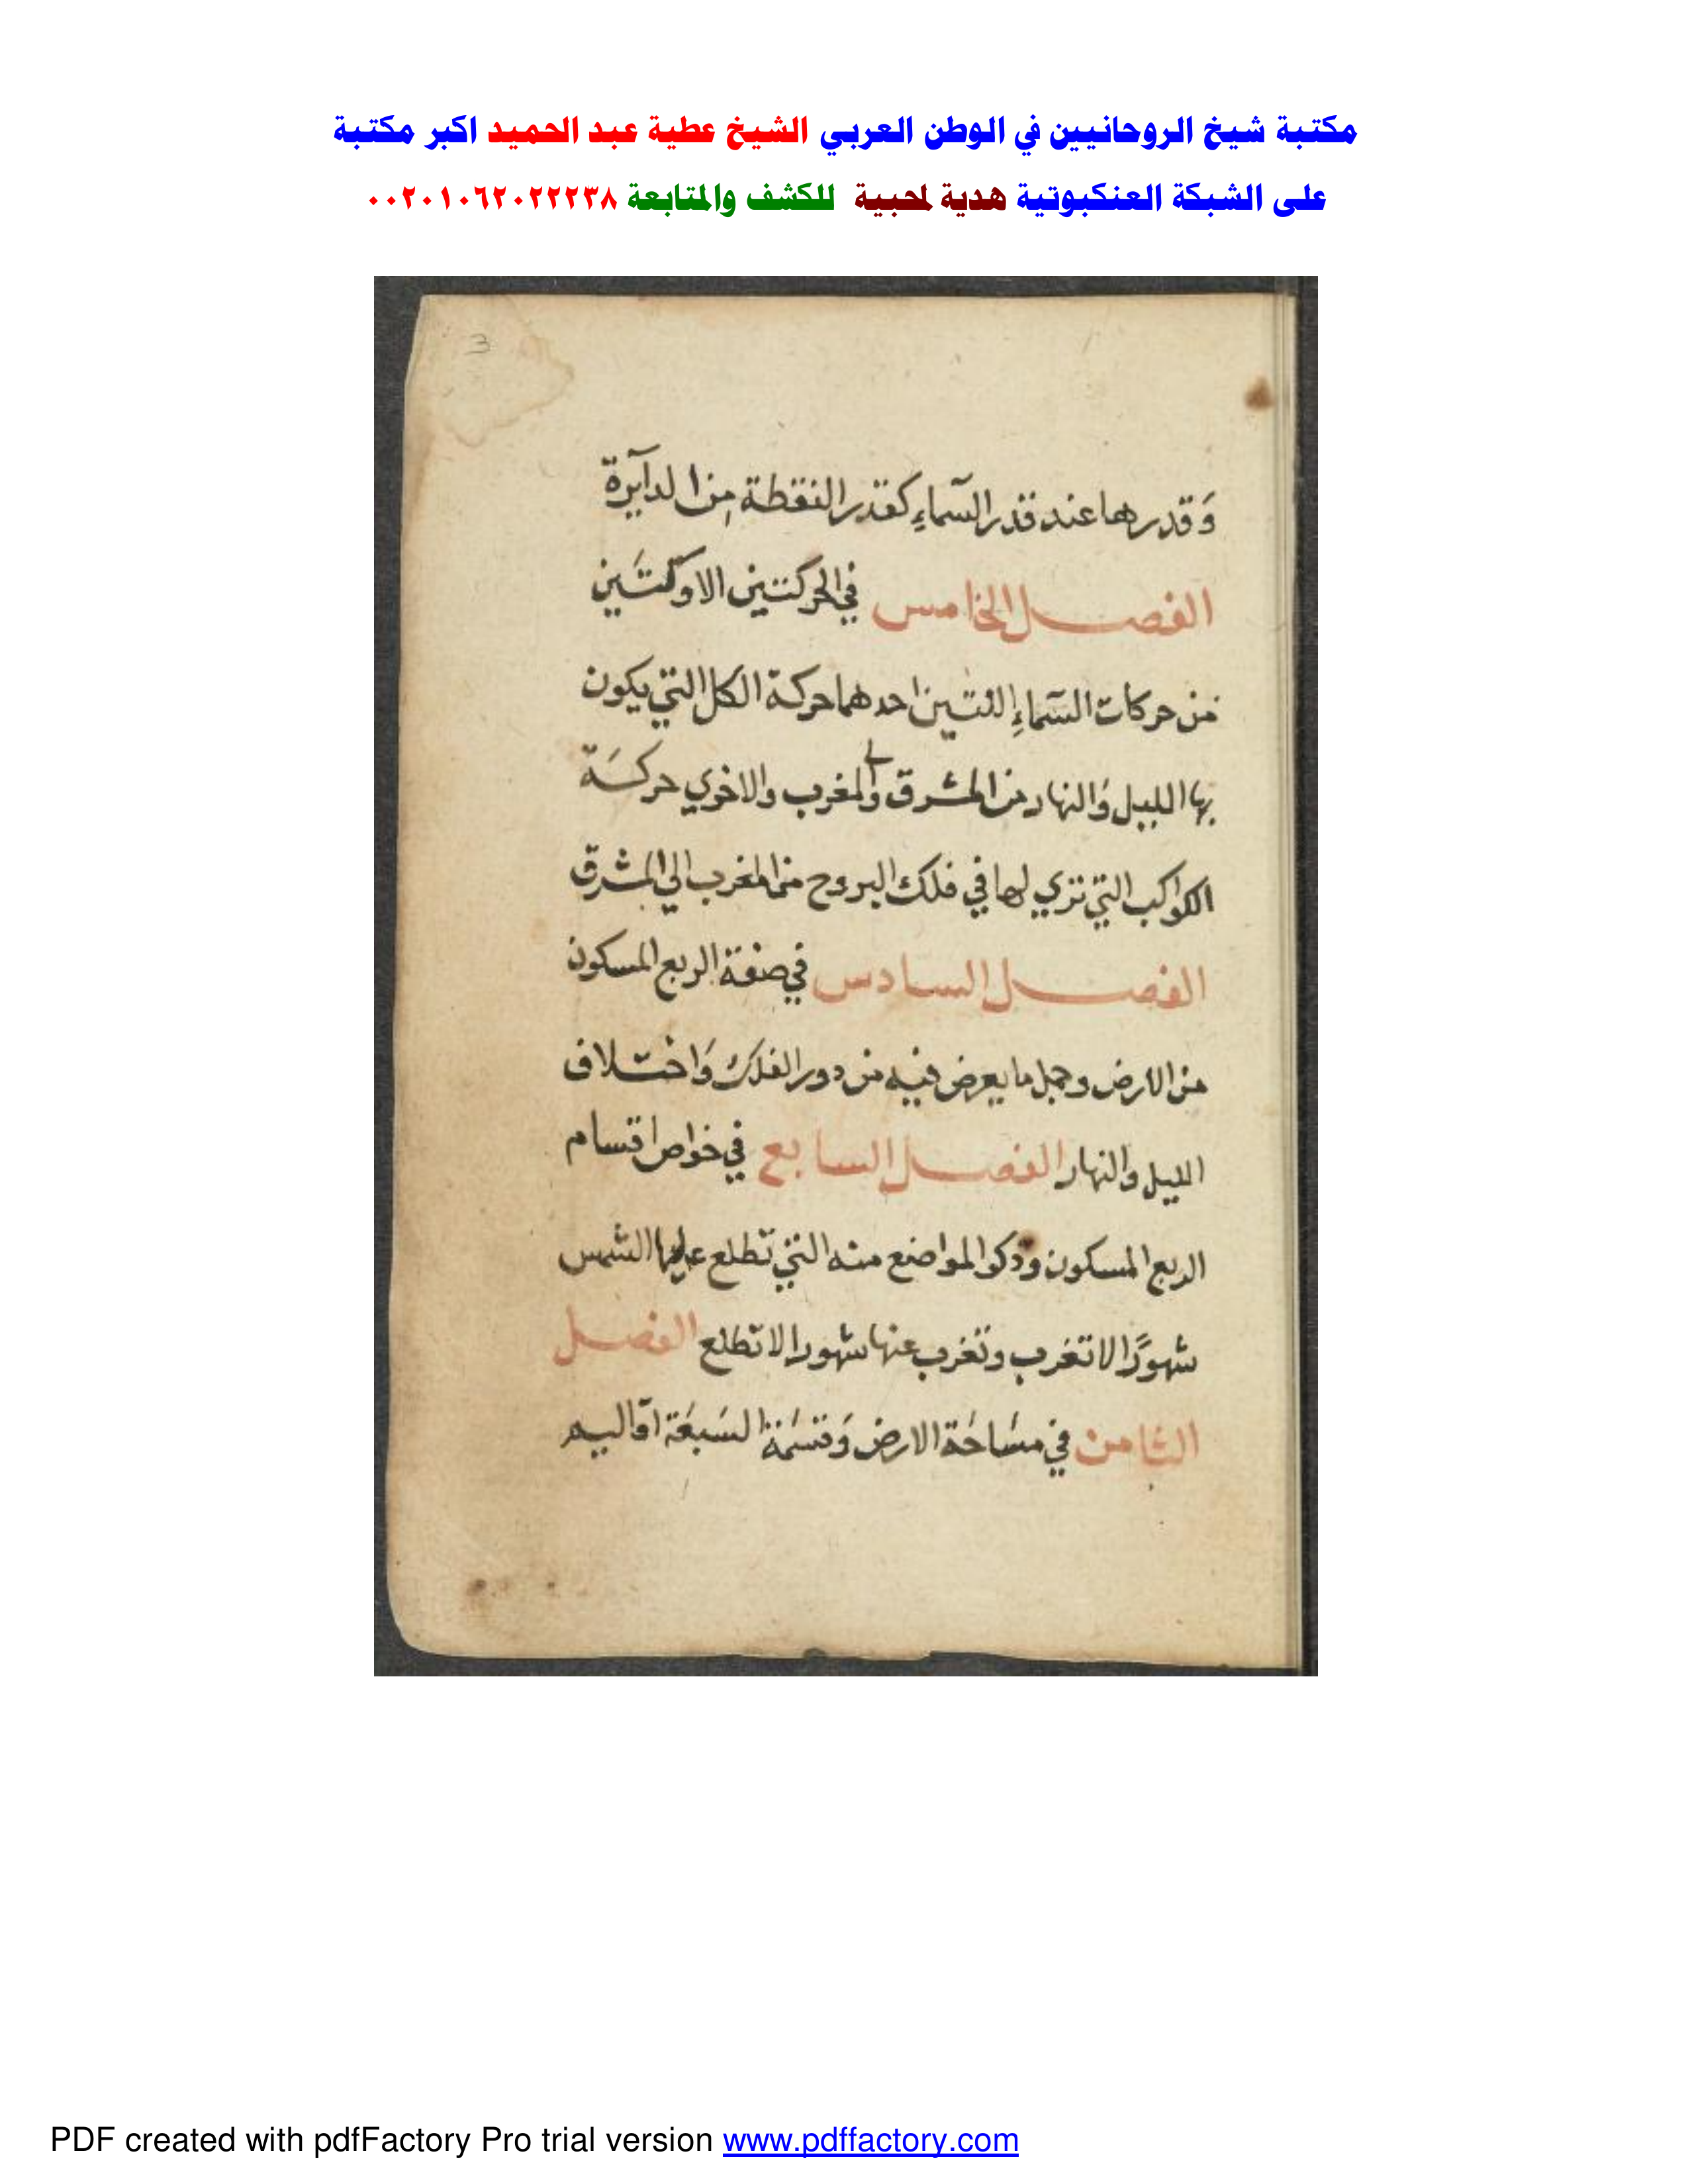 مكتبة شيخ الروحانيين في الوطن العربي الشيخ عطية عبد الحميد اكبر مكتبة
على الشبكة العنكبوتية هدية لمحبية للكشف والمتابعة ٠٠٢٠١٠٦٢٠٢٢٢٣٨
3
وَقدرها عند قدر السّماءِ كقدر النقطة مِن الدآيرة
الفصل الخامس في الحركتين الاوّلتَين
من حركات السّماءِ اللتين احدهما حركة الكل التي يكون
بها الليل وَالنهار من المشرق والمغرب والاخري حركَة
الكواكب التي تري لها في فلك البروج من المغرب الي المشرق
الفصل السادس في صفة الربع المسكون
من الارض وجمل ما يعرض فيه من دور الفلك وَاختلاف
الليل والنهار الفصل السابع في خواص اقسام
الربع المسكون وذكر المواضع منه التي تطلع عليها الشمس
شهورًا لا تغرب وتغرب عنها شهورا لا تطلع الفصل
الثامن في مسَاحَة الارض وَقسَمَة السَبعَة اقاليم
PDF created with pdfFactory Pro trial version www.pdffactory.com